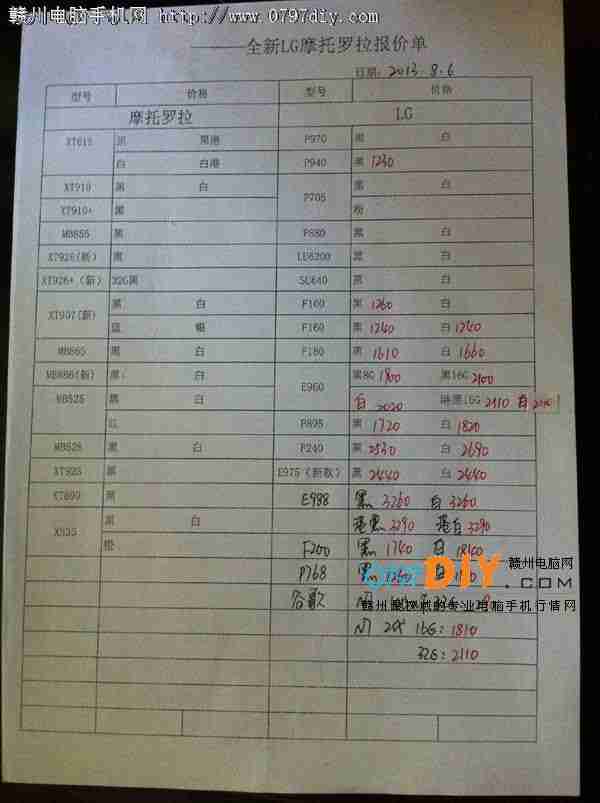 赣州电脑手机网 http://www.0797diy.com
———全新LG摩托罗拉报价单
日期: 2013.8.6
型号 价格 型号 价格
摩托罗拉 LG
XT615 黑 黑港 P970 黑 白
白 白港 P940 黑 1230
XT910 黑 白 P705 黑 白
XT910+ 黑 粉
MB855 黑 P880 黑 白
XT928(新) 黑 LU6200 黑 白
XT926+(新) 32G黑 SU640 黑 白
XT907(新) 黑 白 F160 黑 1260 白
蓝 银 F160 黑 1240 白 1240
MB865 黑 白 F180 黑 1610 白 1660
MB886(新) 黑 白 E960 黑8G 1900 黑16G 2100
MB525 黑 白 白 2020 16G 2110 白
红 P895 黑 1720 白 1820
MB526 黑 白 P240 黑 2530 白 2690
XT925 黑 E975(新款) 黑 2440 白 2440
XT890 黑 E988 黑 3260 白 3260
X535 黑 白 港黑 3290 港白 3290
橙 F200 黑 1740 白 1840
P768 黑 1250 白
谷歌 N7
N7 2代 16G: 1810
32G: 2110
DIY.COM
赣州电脑网
赣州最权威的专业电脑手机行情网